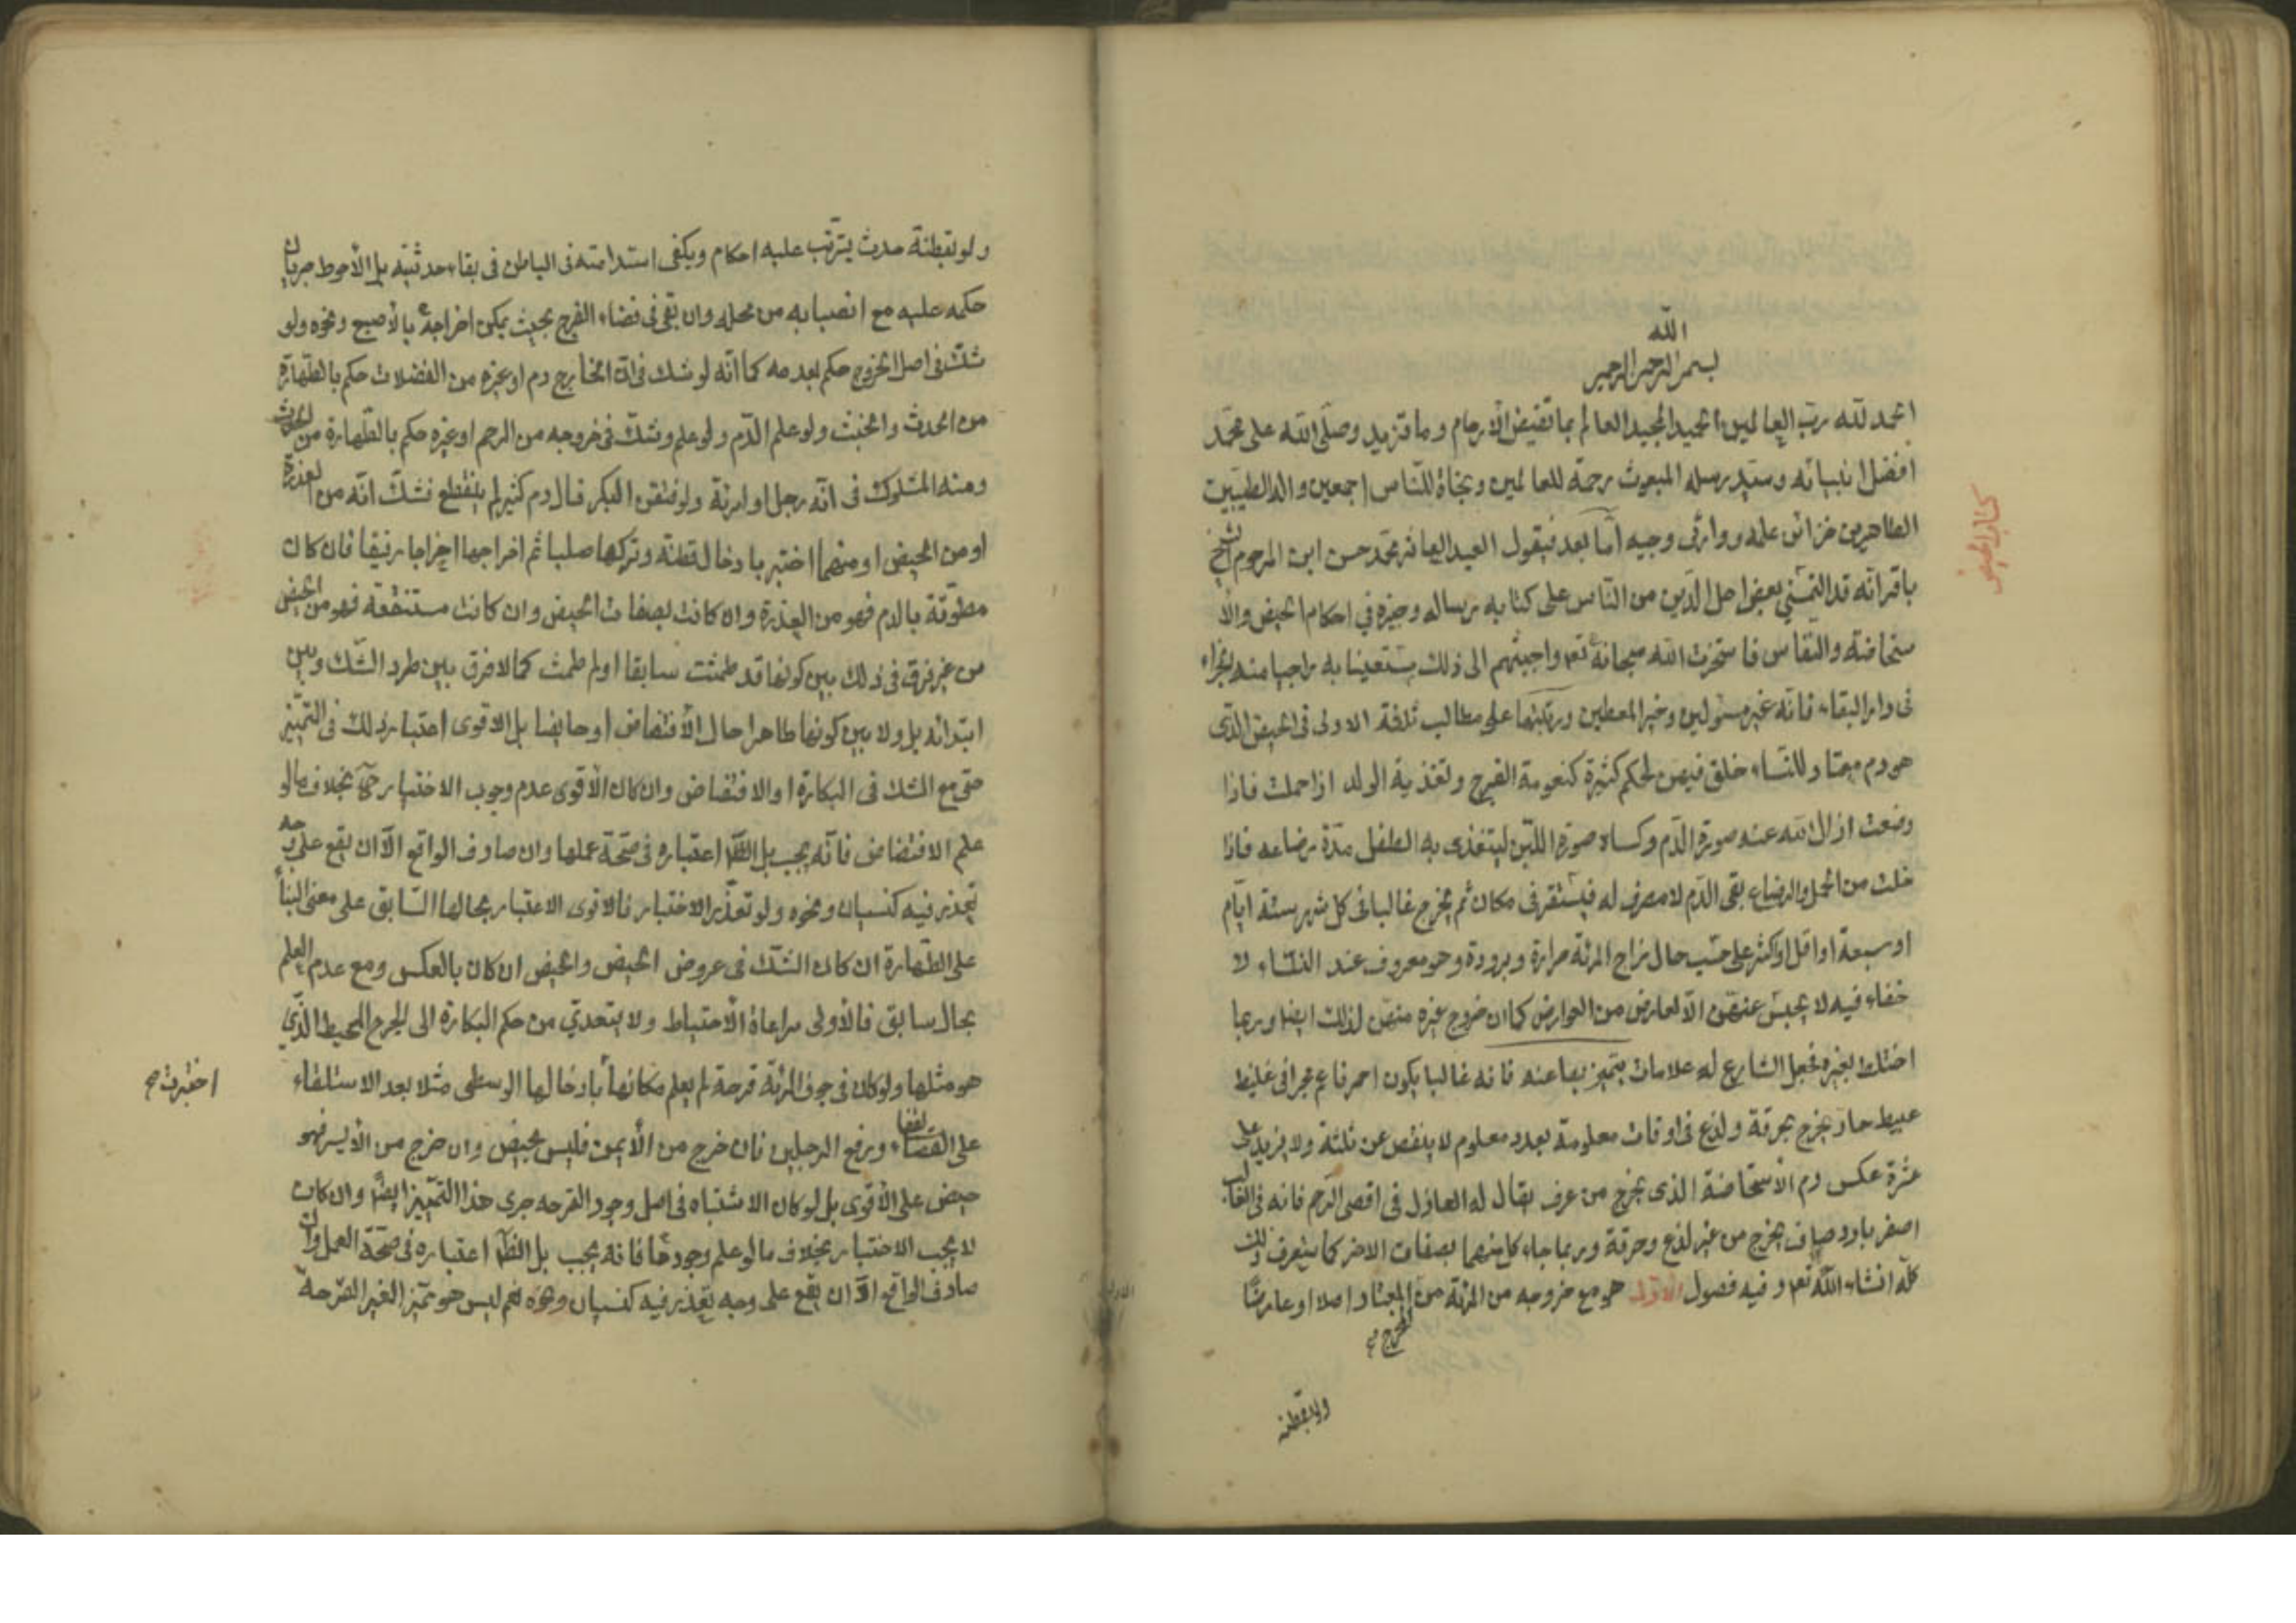 كتاب الحيض
بسم الله الرحمن الرحيم
الحمد لله ربّ العالمين الحميد المجيد العالم بما تغيض الأرحام وما تزيد وصلّى الله على محمّد
افضل انبيائه وسيّد رسله المبعوث رحمة للعالمين ونجاة للنّاس اجمعين واله الطيبين
الطاهرين خزائن علمه ووارثى وحيه أمّا بعد فيقول العبد العاثر محمّد حسن ابن المرحوم الشيخ
باقر انّه قد التمسني بعض اهل الدّين من النّاس على كتابه رساله وجيزه في احكام الحيض والأ
ستحاضة والنفاس فاستخرت الله سبحانه وتعم واجبتهم الى ذلك مستعينا به راجيا منه الجزاء
فى دار البقاء فانّه خير مسئولين وخير المعطين ورتّبتها على مطالب ثلاثة الاولى فى الحيض الذّى
هو دم معتاد للنّساء خلق فيهن لحكم كثيرة كنعومة الفرج وتغذية الولد اذا حملت فاذا
وضعت ازال الله عنه صورة الدّم وكساه صورة اللّبن ليتغذى به الطفل مدّة رضاعه فاذا
خلت من الحمل والرضاع بقى الدّم لا مصرف له فيستقر فى مكان ثم يخرج غالبا فى كل شهر ستة ايّام
او سبعة او اقل او اكثر على حسب حال مزاج المرئة حرارة وبرودة وهو معروف عند النساء لا
خفاء فيه لا يحبس عنهن الّا لعارض من العوارض كما ان خروج غيره منهن لذلك ايضا وربما
اختلط بغيره فجعل الشارع له علامات يتميّز بها عنه فانه غالبا يكون احمر قانع بحرانى غليظ
عبيط حار يخرج بحرقة ولذع فى اوقات معلومة بعدد معلوم لا ينقص عن ثلثة ولا يزيد على
عشرة عكس دم الأستحاضة الذى يخرج من عرف يقال له العاذل فى اقصى الرّحم فانه فى الغالب
اصفر بارد صاف يخرج من غير لذع وحرقة وربما جاء كل منهما بصفات الاخر كما ستعرف ذلك
كلّه انشاء الله تعم وفيه فصول الاوّل هو مع خروجه من المرئة من المعتاد اصلا او عارضًا
المخرج
ولو بقطنه
ولو بقطنة حدث يترتّب عليه احكام ويكفى استدامته فى الباطن فى بقاء حدثيّته بل الأحوط جريان
حكمه عليه مع انصبابه من محله وان بقى فى فضاء الفرج بحيث يمكن اخراجه بالأصبع ونحوه ولو
شكّ فى اصل الخروج حكم بعدمه كما انّه لو شك فى انّ الخارج دم او غيره من الفضلات حكم بالطّهارة
من الحدث والخبث ولو علم الدّم ولو علم وشكّ فى خروجه من الرحم او غيره حكم بالطّهارة من الحدث
ومنه المشكوك فى انّه رجل او امرئة ولو فتقن البكر فسال دم كثير لم ينقطع فشكّ انّه من العذرة
او من الحيض او منهما اختبر بادخال قطنة وتركها صلبا ثم اخراجها اخراجا رفيقا فان كان
مطوّقة بالدم فهو من العذرة وان كانت بصفات الحيض وان كانت مستنقعة فهو من الحيض
من غير فرق فى ذلك بين كونها قد طمثت سابقا او لم طمث كما لا فرق بين طرد الشّك وبين
ابتدائه بل ولا بين كونها طاهرا حال الأفتضاض او حايضا بل الاقوى اعتبار ذلك فى التميّيز
حتى مع الشك فى البكارة او الافتضاض وان كان الأقوى عدم وجوب الاختبار ح بخلاف ما لو
علم الافتضاض فانّه يجب بل الظّ اعتباره فى صحّة عملها وان صادف الواقع الّا ان يقع على وجه
تعذر فيه كنسيان ونحوه ولو تعذّر الاختبار فالاقوى الاعتبار بحالها السّابق على معنى البناء
على الطّهارة ان كان الشك فى عروض الحيض والحيض ان كان بالعكس ومع عدم العلم
بحال سابق فالأولى مراعاة الأحتياط ولا يتعدّي من حكم البكارة الى الجرح المحيط الذّي
هو مثلها ولو كان فى جوف المرئة قرحة لم يعلم مكانها بادخالها الوسطى مثلا بعد الاستلقاء
اختبرت صح
على القفا ورفع الرجلين فان خرج من الأيمن فليس بحيض وان خرج من الأيسر فهو
حيض على الأقوى بل لو كان الاشتباه فى اصل وجود القرحه جرى هذا التمّييز ايضًا وان كان
لا يجب الاختبار بخلاف ما لو علم وجودها فانه يجب بل الظّ اعتباره فى صحّة العمل وان
صادف الواقع الّا ان يقع على وجه تعذر فيه كنسيان ونحوه نعم ليس هو تميّز الغير القرحة